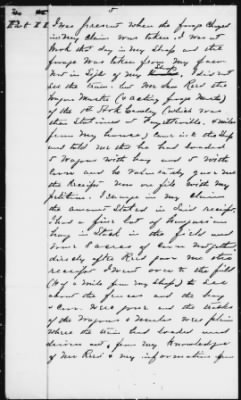 5
I was present when the forage charged
in my Claim was taken. I was at
Work that day in my Shop and the
forage was taken from my farm
not in Sight of my I did not
see the train but Mr Reed the
Wagon Master (& acting forage Master)
of the 1st Cavalry (which was
then Stationed at Fayetteville, miles
from my house) came into the Shop
and told me that he had loaded
5 Wagons with hay and 5 with
Corn and he Voluntarily gave me
the Receipt now on file with my
petition. I charge in my Claim
the amount Stated in Said receipt.
I had a fine lot of hungarian
hay in Stack in the field and
some 8 acres of Corn not gathered
directly after Reed gave me the
receipt I went over to the field
(¼ of a mile from my Shop) to see
about the fences and the hay
& Corn were gone and the tracks
of the Wagons & Mules was plain
where the train had loaded and
driven out, from my Knowledge
of Mr Reed & my information from